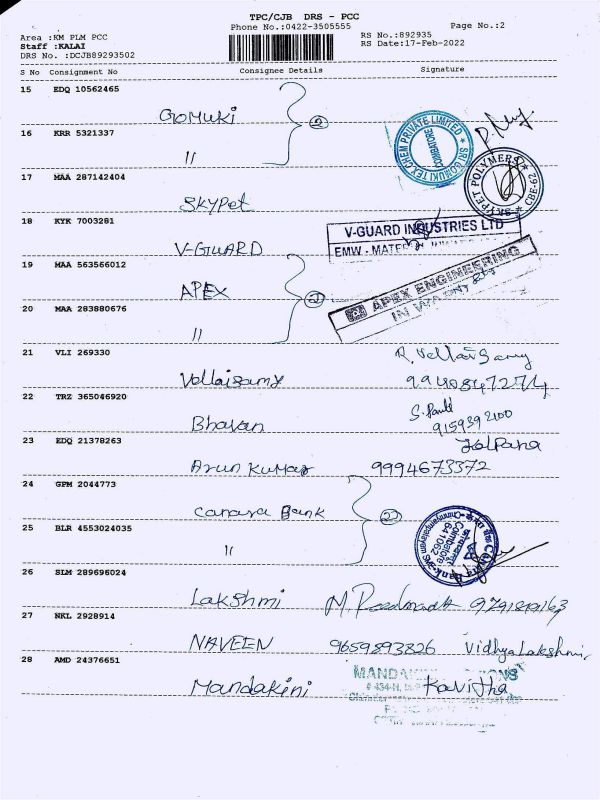 TPC/CJB DRS - PCC
Phone No.:0422-3505555 Page No.:2
Area :KM PLM PCC RS No.:892935
Staff :KALAI RS Date:17-Feb-2022
DRS No. :DCJB89293502
S No Consignment No Consignee Details Signature
15 EDQ 10562465
GOMUKI 2
16 KRR 5321337
"
SRI GOMUKI TEX CHEM PRIVATE LIMITED
COIMBATORE
17 MAA 287142404
SKYPet
SKYPET POLYMERS
CBE-62
18 KYK 7003281
V-GUARD
V-GUARD INDUSTRIES LTD
EMW - MATER
19 MAA 563566012
APEX 2
APEX ENGINEERING
20 MAA 283880676
"
21 VLI 269330 R. Vellaisamy
Vellaisamy 9940847274
22 TRZ 365046920
Bhavan 9159392100
23 EDQ 21378263 Kalpana
Arun Kumar 9994673372
24 GPM 2044773
Canara Bank 2
25 BLR 4553024035
"
Coimbatore
641062
26 SLM 289696024
Lakshmi
27 NKL 2928914
NAVEEN 9659893826 Vidhya Lakshmi
28 AMD 24376651
Mandakini Kavitha